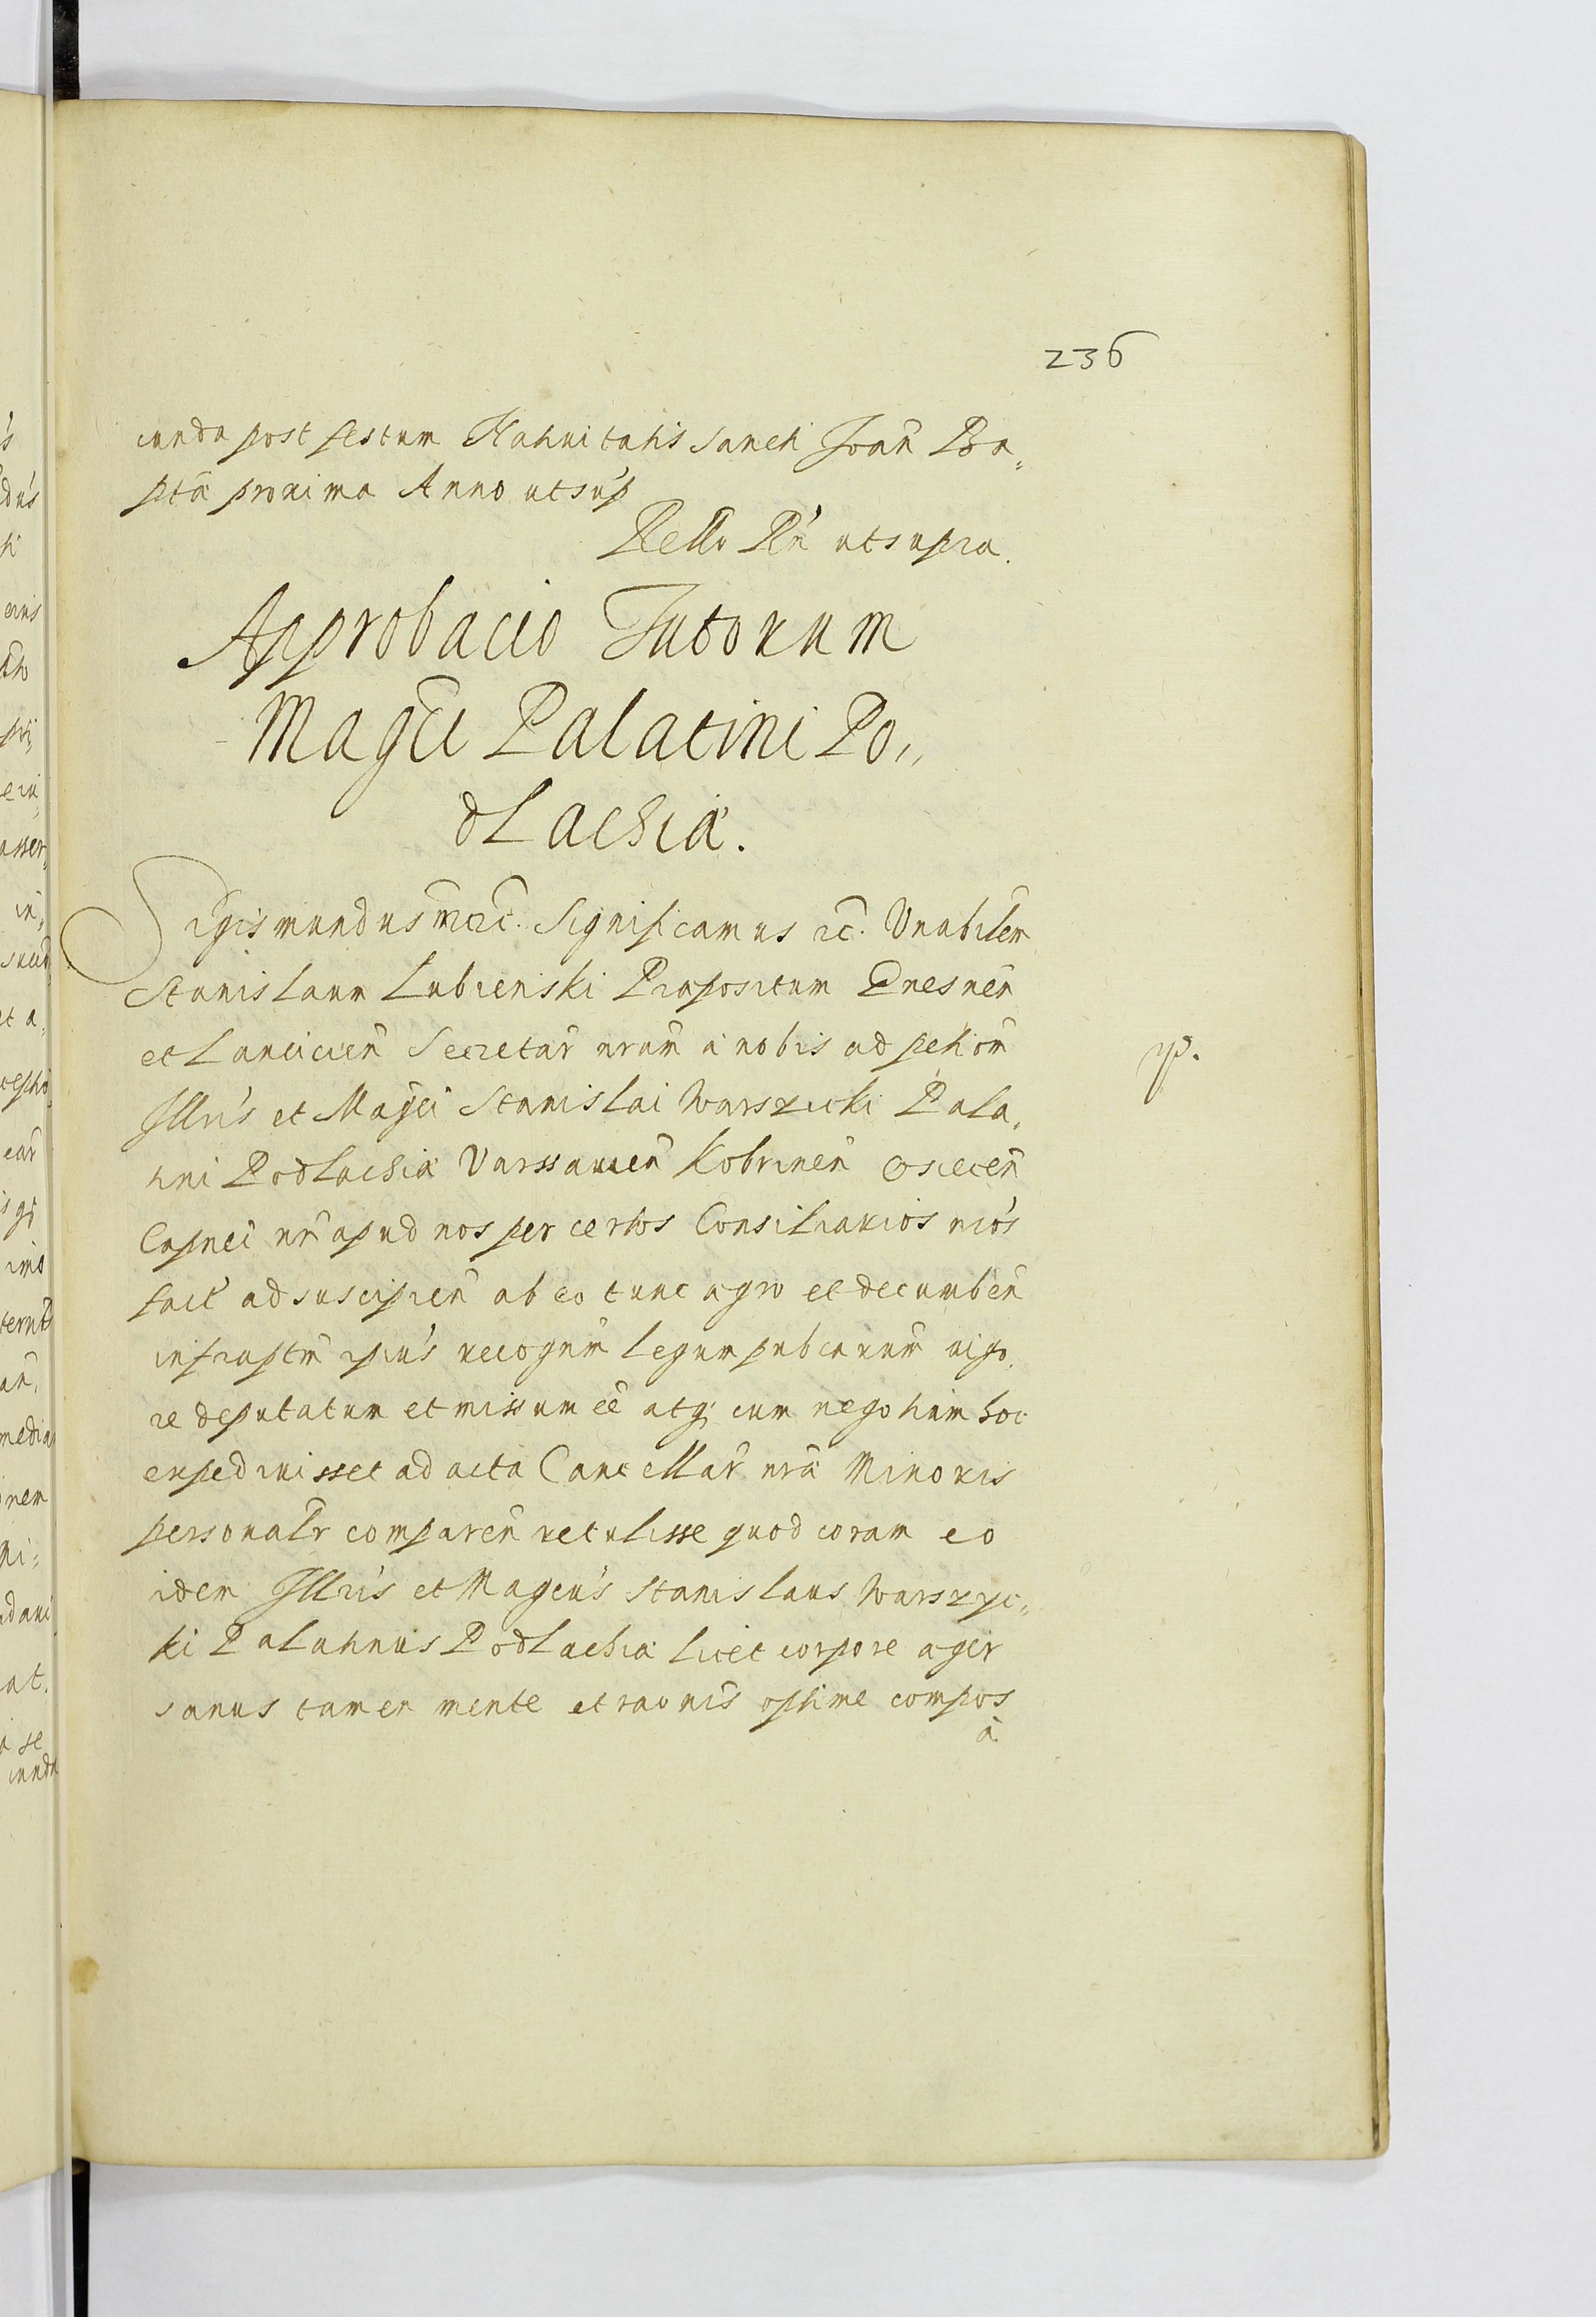 236
cunda post festum Natiuitatis Sancti Joan̄ Ba„
ptā proxima Anno ut sup̄
Rello R̄n ut supra.
Approbacio Tutorum
Magci Palatini Po„
dLachiæ.
Sigismundus etc. Significamus etc. Vnabilem
Stanislaum Lubienski Præpositum Gnesnen̄
et Lanciciēn Secretar̄ nrum̄ a nobis ad petiōm
Illrīs et Magci Stanislai Warszicki Pala„
tini Podlachiæ Varssauien̄ Kobrinen̄ Osiecen̄
Capnei nr̄i apud nos per certos Consiliarios nrōs
fact̄ ad suscipien̄ ab eo tunc ægro et decumben̄
infraptm̄ ipius recognm̄ legum pubcarum̄ uigo„
re deputatum et missum eē atq; cum negotium hoc
expediuisset ad acta Cancellar̄ nræ Minoris
personalr̄ comparen̄ retulisse quod coram eo
idem Illris et Magcus Stanislaus Warszyc„
ki Palatinus Podlachiæ licet corpore æger
sanus tamen mente et raōnis optime compos
a